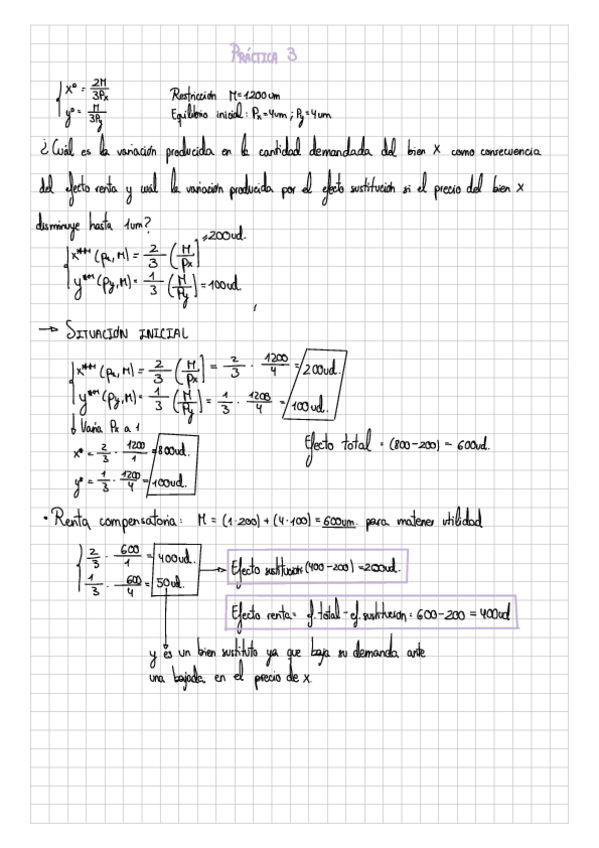 PRÁCTICA 3
x° = 2M/3Px
y° = M/3Py
Restricción M=1200um
Equilibrio inicial: Px=4um ; Py=4um
¿Cuál es la variación producida en la cantidad demandada del bien X como consecuencia
del efecto renta y cuál la variación producida por el efecto sustitución si el precio del bien X
disminuye hasta 1um?
x*** (px, M) = 2/3 (M/Px) = 200ud.
y*** (py, M) = 1/3 (M/Py) = 100ud.
→ SITUACIÓN INICIAL
x*** (px, M) = 2/3 (M/Px) = 2/3 · 1200/4 = 200ud.
y*** (py, M) = 1/3 (M/Py) = 1/3 · 1200/4 = 100ud.
↓ Varía Px a 1
x° = 2/3 · 1200/1 = 800ud.
y° = 1/3 · 1200/4 = 100ud.
Efecto total = (800-200) = 600ud.
· Renta compensatoria: M = (1·200) + (4·100) = 600um. para matener utilidad
2/3 · 600/1 = 400ud.
1/3 · 600/4 = 50ud.
→ Efecto sustitución (400-200) = 200ud.
Efecto renta = ef. total - ef. sustitución = 600-200 = 400ud
y es un bien sustituto ya que baja su demanda ante
una bajada en el precio de x.